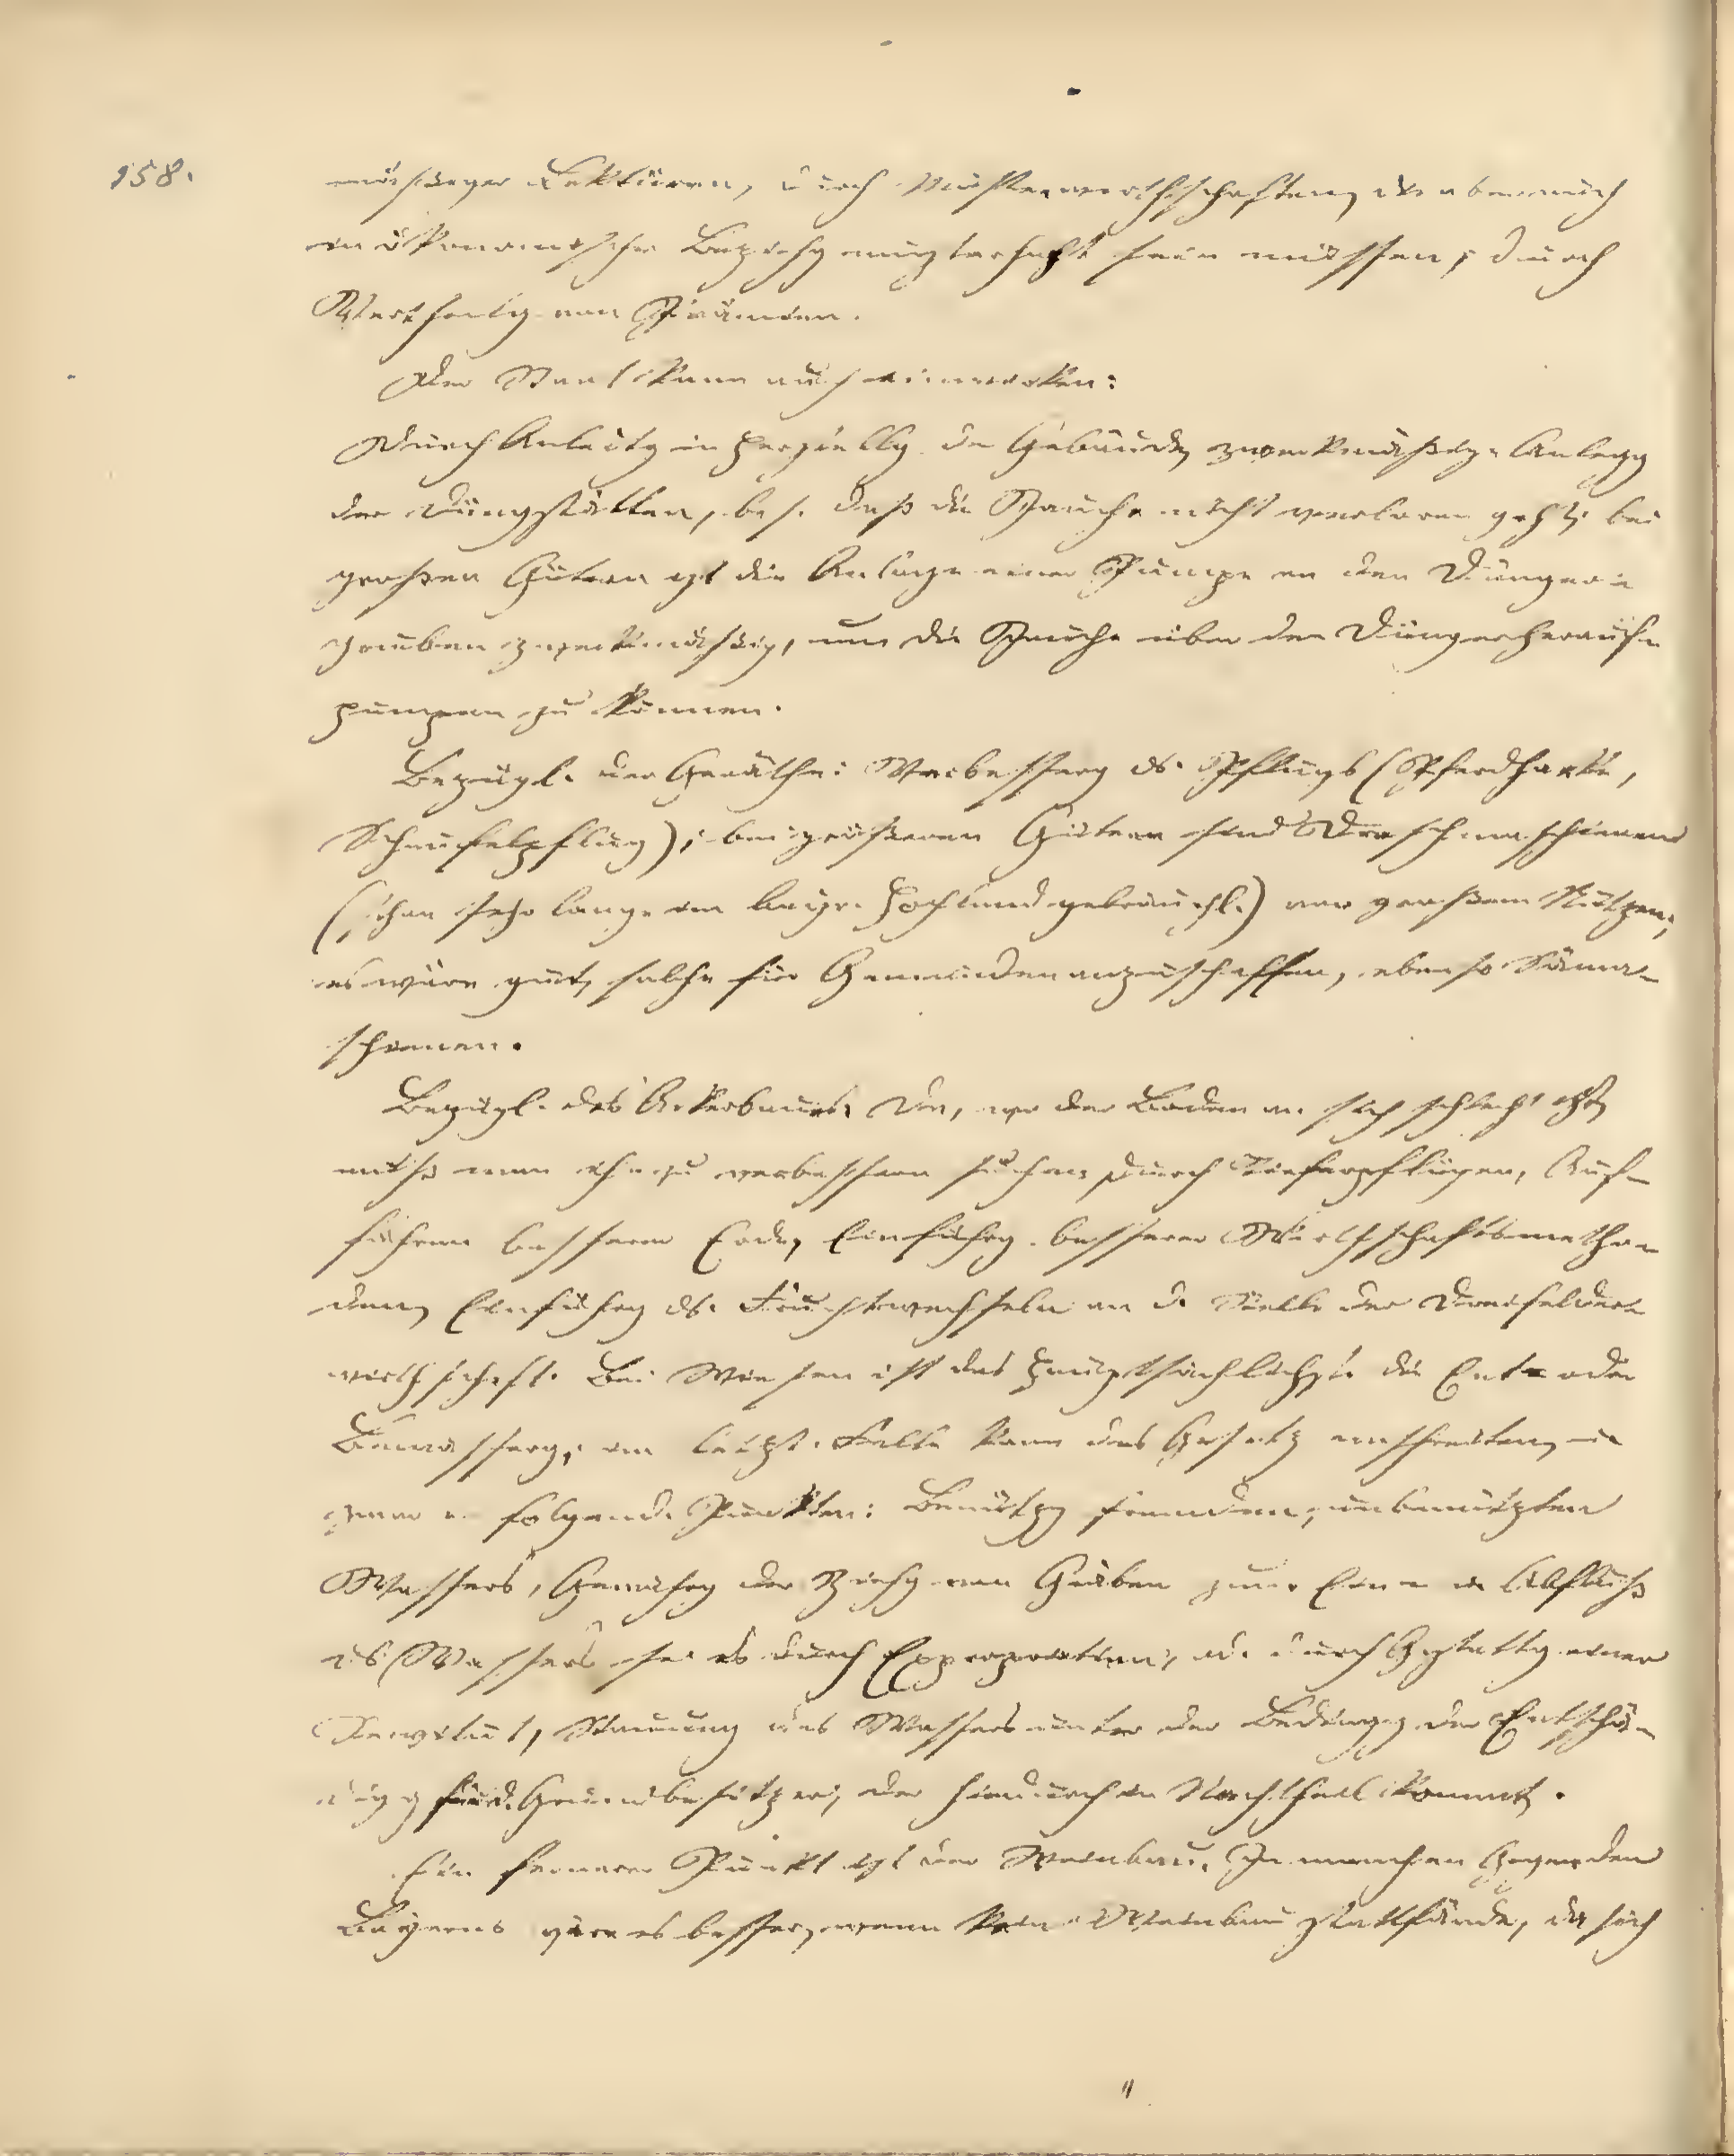 158.
mäsiger Lektüren, durch Musterwirthschaften, die aber auch
in ökonomischer Beziehg musterhaft sein müssen; durch
Vertheilg von Prämien.
Der Staat kann auch einwirken:
Durch Anleitg in Herstellg der Gebäude, zweckmäßige Anlegg
der Düngstätten, bes. daß die Jauche nicht verloren geht; bei
großen Gütern ist die Anlage einer Pumpe in den Dünger-
gruben zweckmäsig, um die Jauche über den Dünger herauf-
pumpen zu können.
Bezügl. der Geräthe: Verbesserg ds. Pflugs (Pferdharke,
Schaufelpflug); bei gröseren Gütern sind Dreschmaschienen
(schon sehr lange im bayr. Hochland gebräuchl.) von großem Nutzen;
es wäre gut, solche für Gemeinden anzuschaffen, ebenso Säma-
schienen.
Bezügl. des Ackerbaues. Da, wo der Boden an sich schlecht ist,
muß man ihn zu verbessern suchen durch Tieferpflügen, Auf-
führen besserer Erde, Einführg besserer Wirthschaftsmetho-
den, Einführg ds. Fruchtwechseln an d. Stelle der Dreifelder-
wirthschaft. Bei Wiesen ist das Hauptsächlichste die Ent- oder
Bewässerg; im letzt. Falle kann das Gesetz einschreiten,
zwar in folgend. Punkten: Benützg fremden, unbenützten
Wassers, Gewährg der Ziehg von Gräben zum Ein- u. Abfluß
ds. Wassers sei es durch Expropriation, od. durch Gestattg einer
Servitut, Stauung des Wassers unter der Bedingg der Entschä-
digg für d. Grundbesitzer, der hierdurch in Nachtheil kommt.
Ein fernerer Punkt ist der Weinbau. In manchen Gegenden
Bayerns wäre es besser, wenn kein Weinbau stattfände, da sich